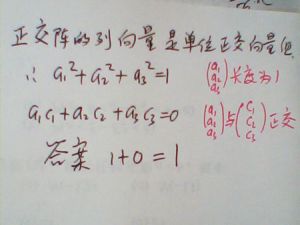 正交阵的列向量是单位正交向量组
∴ a₁²+a₂²+a₃²=1 (a₁ a₂ a₃)长度为1
a₁c₁+a₂c₂+a₃c₃=0 (a₁ a₂ a₃)与(c₁ c₂ c₃)正交
答案 1+0=1